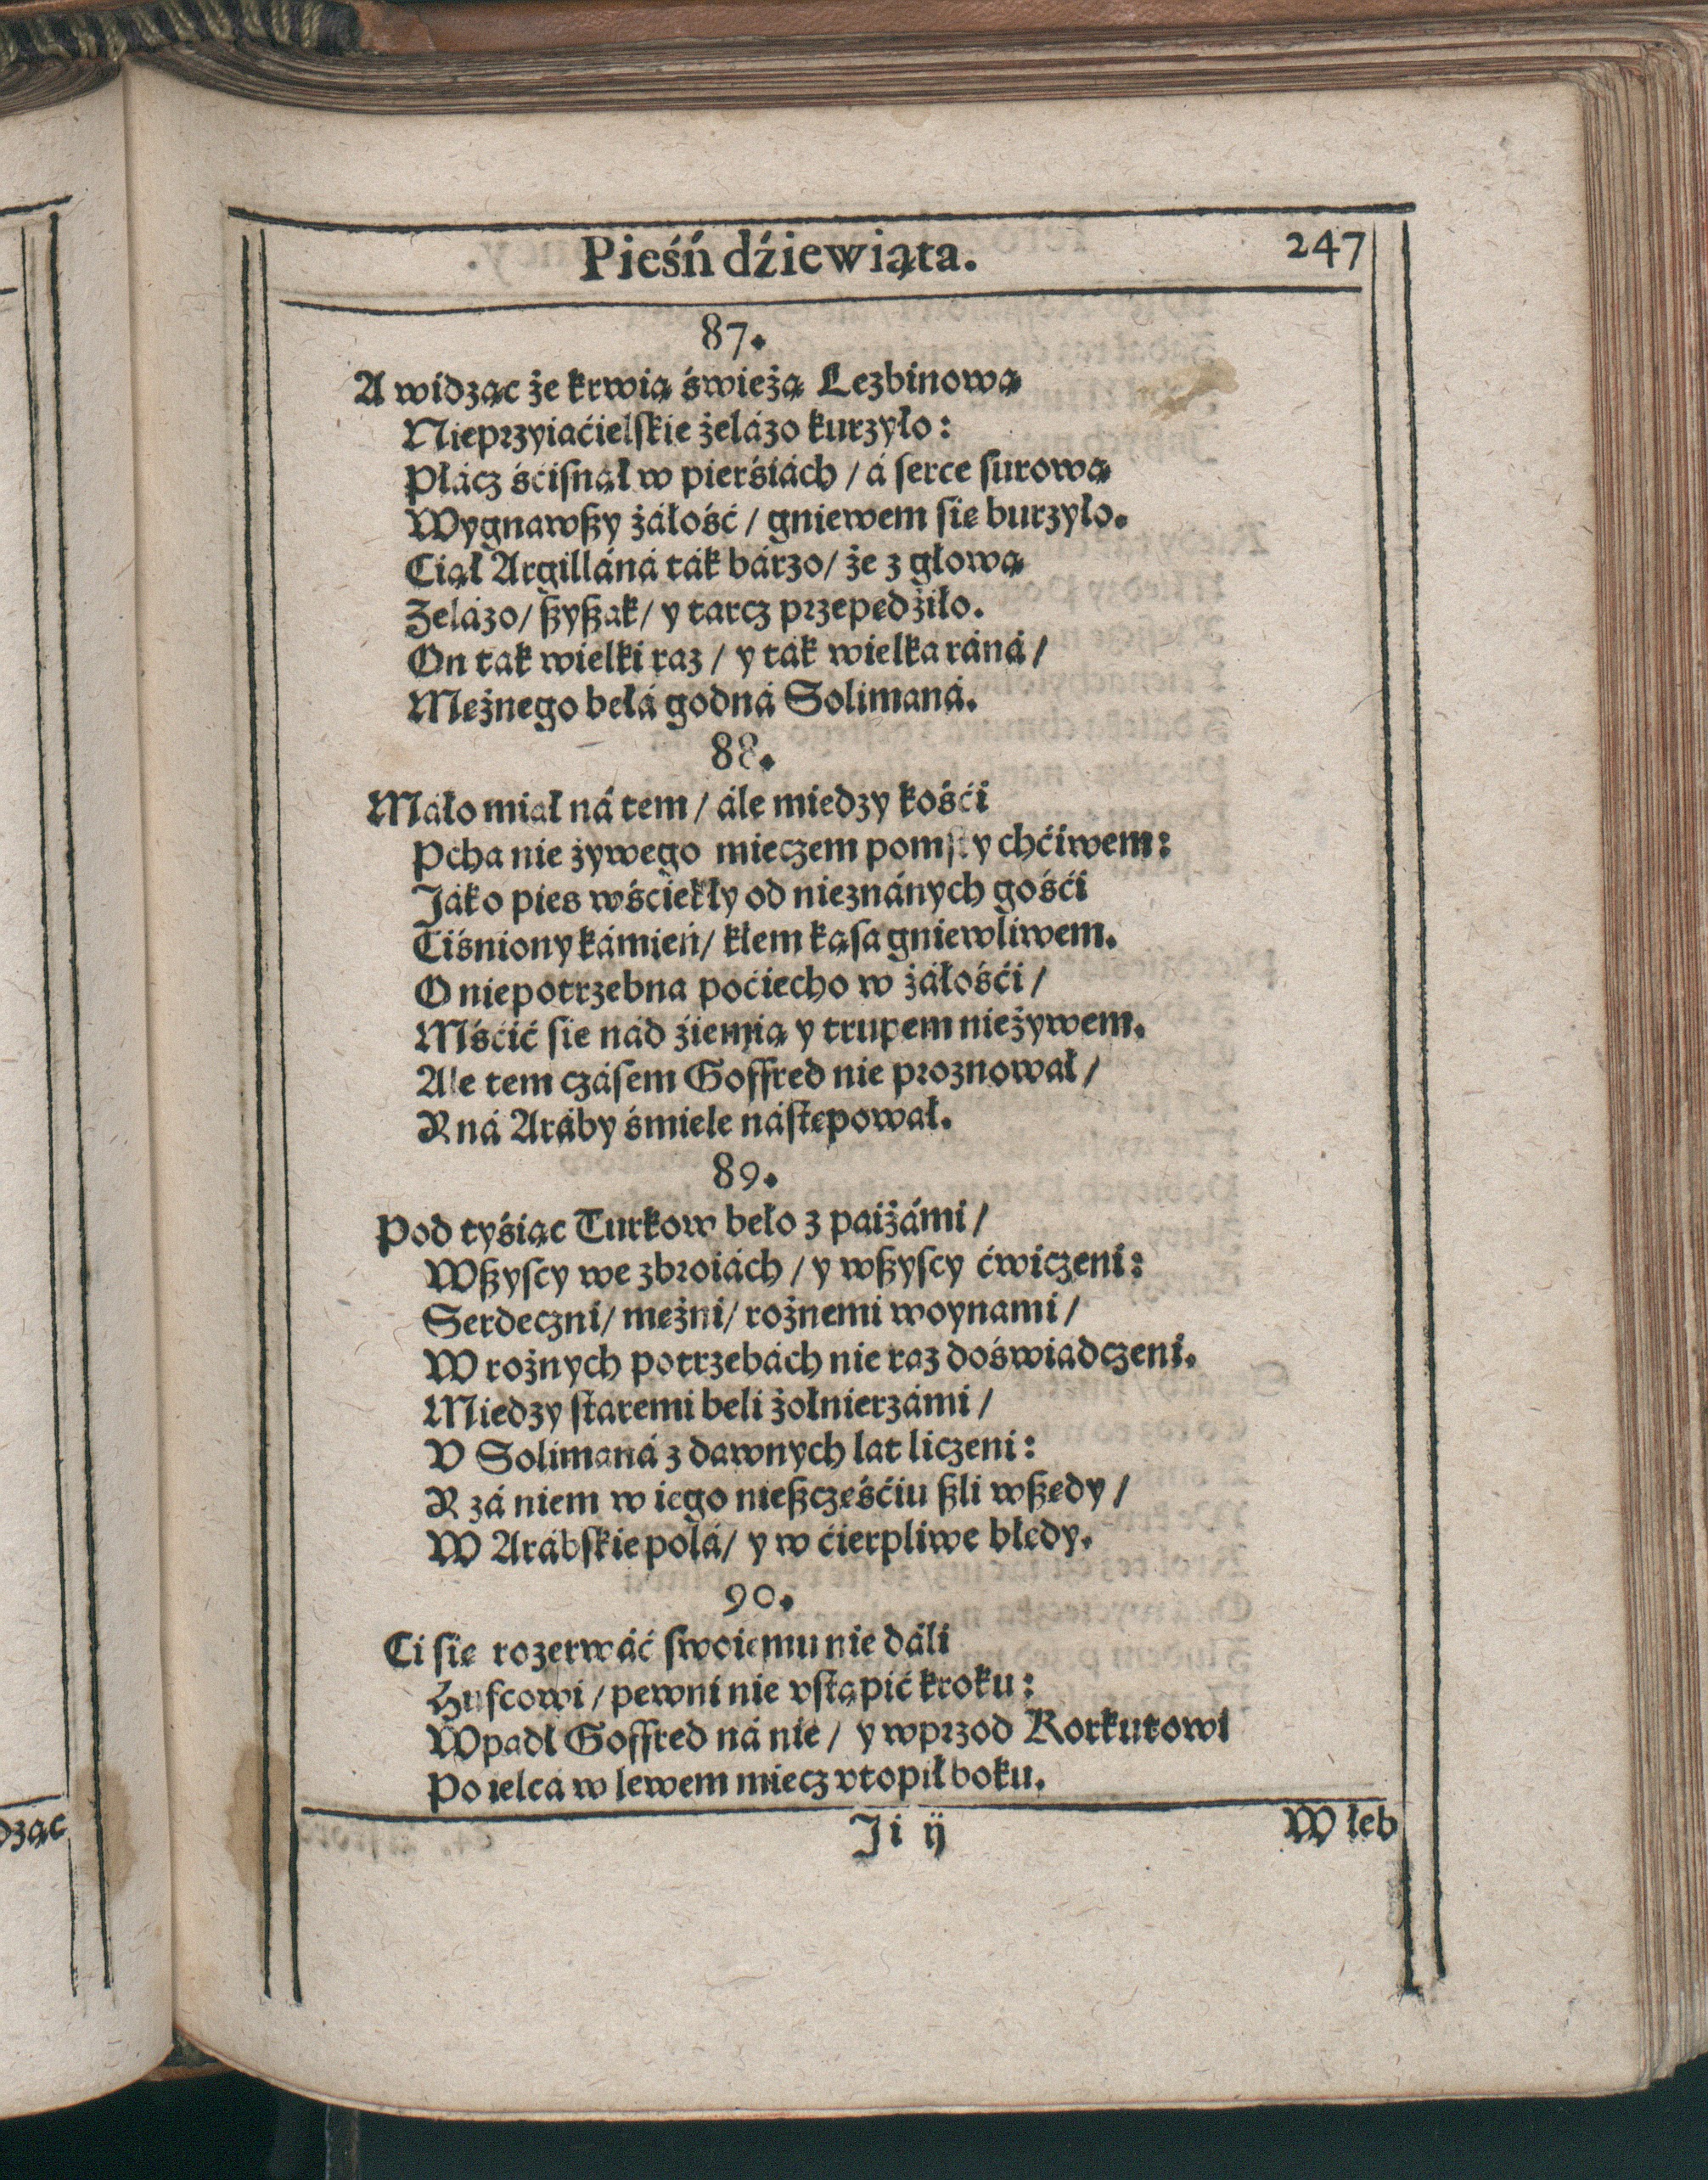 Pieśń dźiewiąta.
247
87.
A widząc że krwią świeżą Lezbinową
Nieprzyiaćielſkie żelázo kurzyło:
Płácz śćiſnął w pierśiách / á ſerce ſurową
Wygnawſzy żáłość / gniewem ſie burzyło.
Ciął Argilláná ták bárzo / że z głową
Zelázo / ſzyſzak / y tarcz przepędźiło.
On tak wielki raz / y ták wielka ráná /
Mężnego bełá godná Solimaná.
88.
Máło miał ná tem / ále miedzy kośći
Pcha nie żywego mieczem pomſty chćiwem:
Jáko pies wśćiekły od nieznánych gośći
Ciśniony kámień / kłem kąſa gniewliwem.
O niepotrzebna poćiecho w żáłośći /
Mśćić ſie nád źiemią y trupem nieżywem.
Ale tem czáſem Goffred nie proznował /
Y ná Aráby śmiele náſtępował.
89.
Pod tyśiąc Turkow beło z paiżámi /
Wſzyſcy we zbroiách / y wſzyſcy ćwiczeni:
Serdeczni / mężni / rożnemi woynami /
W rożnych potrzebách nie raz doświadczeni.
Miedzy ſtaremi beli żołnierzámi /
V Solimaná z dawnych lat liczeni:
Y zá niem w iego nieſzczęśćiu ſzli wſzędy /
W Arábſkie polá / y w ćierpliwe błędy.
90.
Ci ſie rozerwáć ſwoiemu nie dáli
Hufcowi / pewni nie vſtąpić kroku:
Wpadł Goffred ná nie / y wprzod Korkutowi
Po ielcá w lewem miecz vtopił boku.
Ji ij
W łeb
dząc